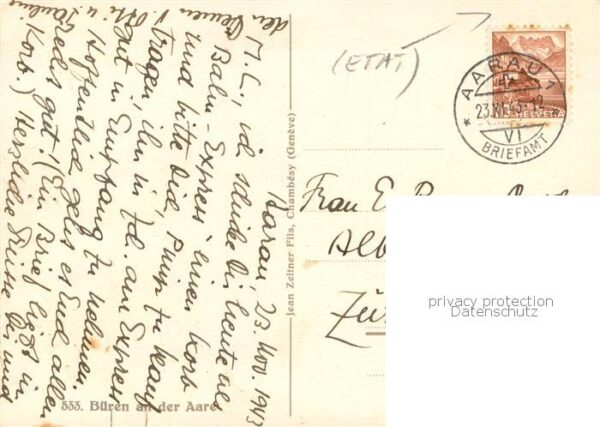 Aarau, 23. Nov. 1943
M. L., ich schicke Dir heute per
Bahn-Express einen Korb
und bitte Dich,
tragen, ihn in am Express
gut in Empfang zu nehmen.
Hoffentlich geht es Euch allen
gut! (Ein Brief liegt im
Korb.) Herzliche Grüsse Dir und
333. Büren an der Aare
Jean Zeltner Fils, Chambésy (Genève)
(ETAT)
HELVETIA
AARAU 1
23.XI.43-12
VI
BRIEFAMT
Frau E.
Alb
Zü
privacy protection
Datenschutz